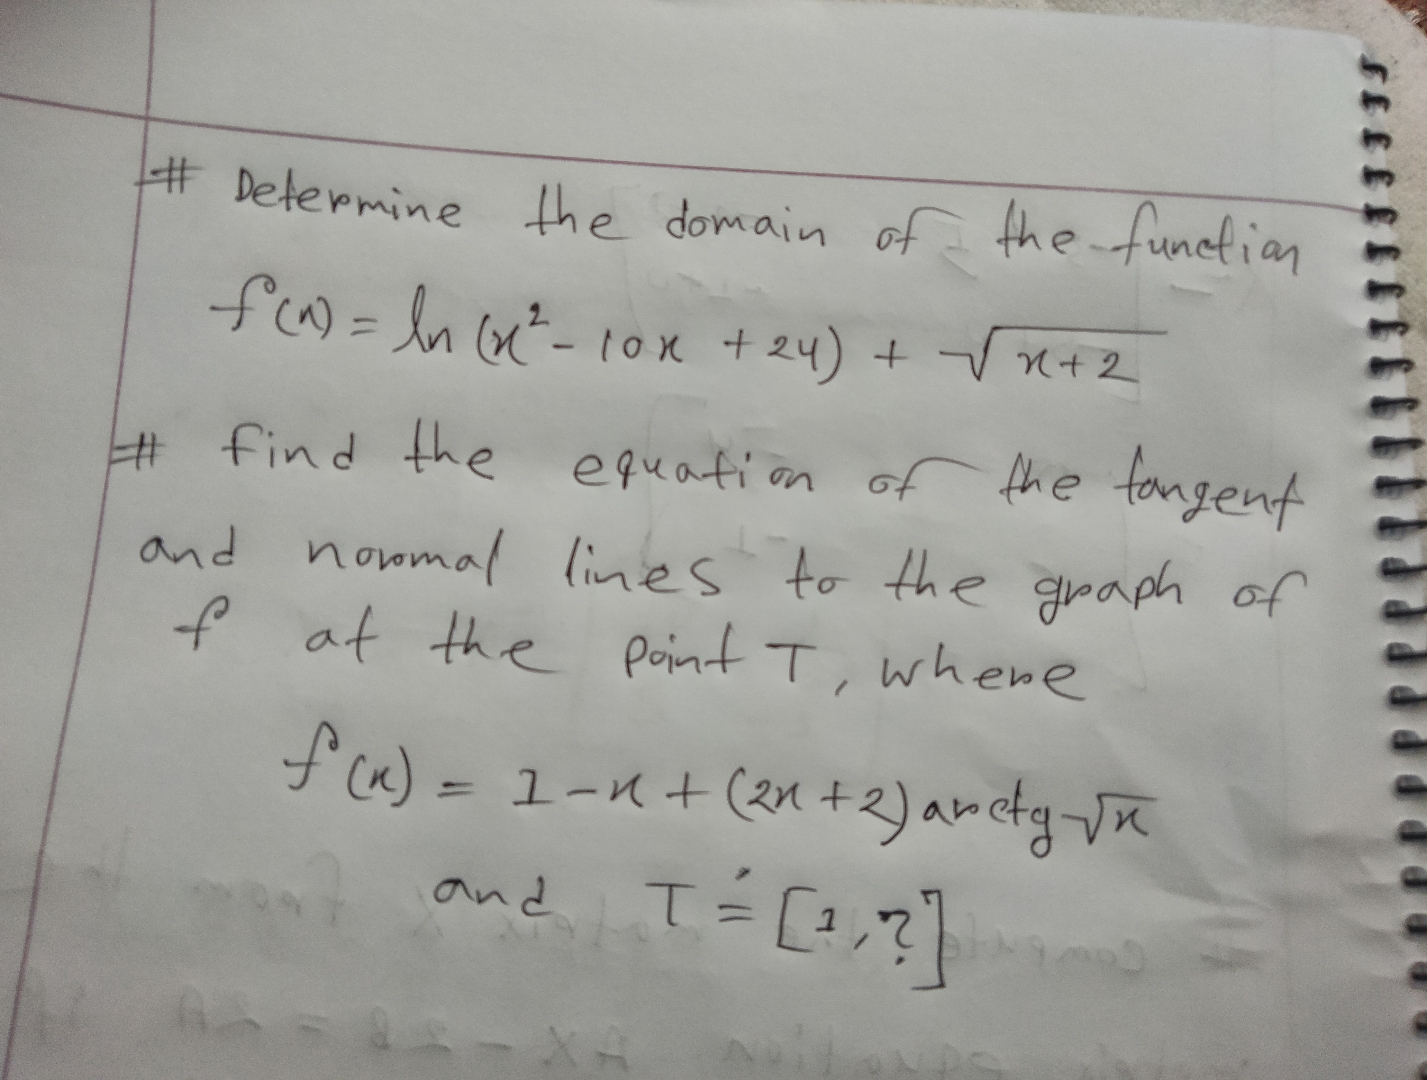 # Determine the domain of the function
f(x) = ln (x² - 10x + 24) + √x+2
# find the equation of the tangent
and normal lines to the graph of
f at the point T, where
f(x) = 1-x + (2x+2) arctg √x
and T = [1, ?]